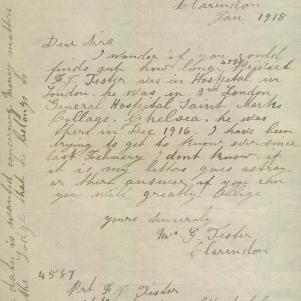 Clarendon
Jan 1918
Dear Sirs
I wonder if you could
finds out how long Privet
4587
F. Tester was in Hospital in
London. he was in 2nd London
General Hospital Saint Marks
Collage. Chelsea. he was
there in Dec 1916. I have been
trying to get to know ever since
last Febuery dont know if
it is my letters goes astray
or there answer if you can
you will greatly oblige
yours Sincerely
Mrs G Tester
Clarendon
4587
Prt F Tester
date is wanted concerning money matters
the Lodge that he belongs to